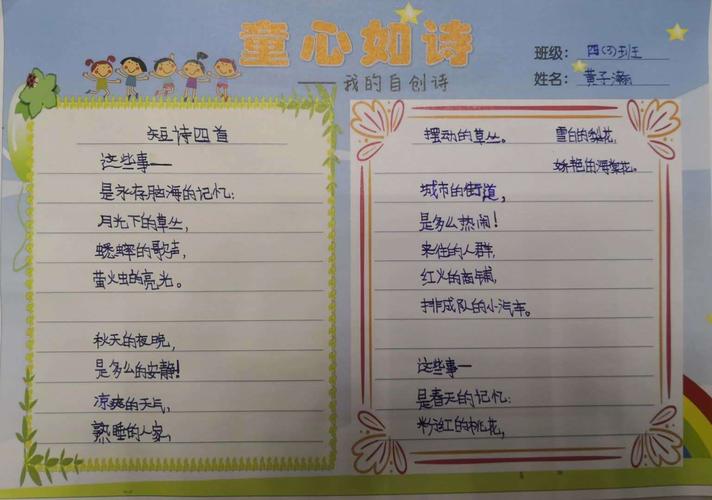 童心如诗
——我的自创诗
班级：四(3)班
姓名：黄子瀚
短诗四首
这些事——
是永存脑海的记忆：
月光下的草丛，
蟋蟀的歌声，
萤火虫的亮光。
秋天的夜晚，
是多么的安静！
凉爽的天气，
熟睡的人家，
摆动的草丛。
城市的街道，
是多么热闹！
来往的人群，
红火的商铺，
排成队的小汽车。
这些事——
是春天的记忆：
粉红的桃花，
雪白的梨花，
娇艳的海棠花。